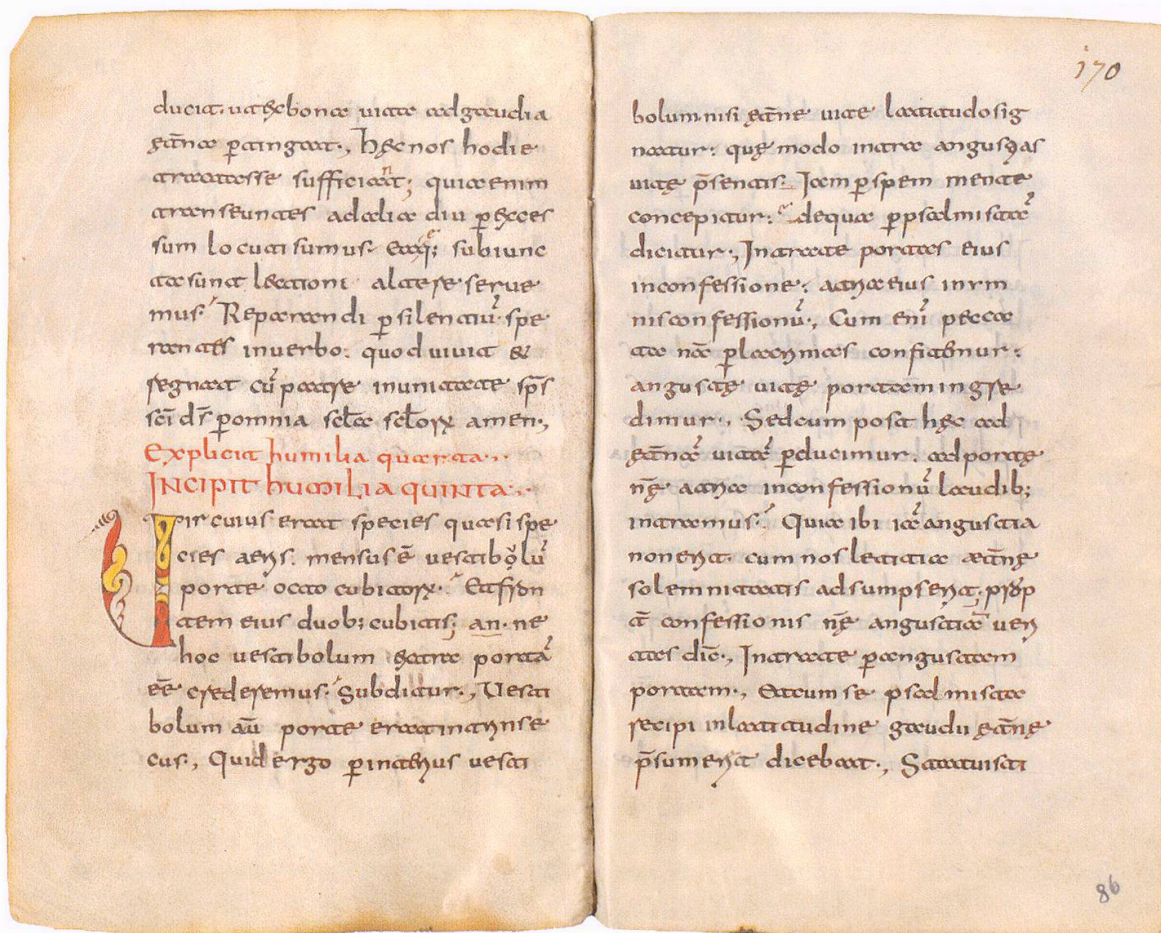 ducit. ut et hęc bona uita ad gaudia
ęt̄na p̄tingat., hęc nos hodie
tractasse sufficiant; quia enim
transeuntes ad alia diu p̱ exces
sum locuti sumus. Eaq; subiunc
ta sunt lectioni altere serue
mus. Reparandi p̱ silentiū. spe
rantes in uerbo. quod uiuit &
regnat cū patre in unitate sp̄s
sc̄i ds̄ p̱ omnia sc̄la sc̄lorꝝ amen.,
Explicit humilia quarta.
INCIPIT humilia quinta.
Uir cuius erat species quasi spe
cies aeris. mensus ē uestibolū
porte octo cubitorꝝ. Et fron
tem eius duob; cubitis; an. ne
hoc uestibolum extra portā
eē crederemus. Subditur., Uesti
bolum aū porte erat intrinse
cus., Quid ergo p̱ interius uesti
170
bolum. nisi ęt̄ne uite latitudo sig
natur. quę modo intra angustias
uitę p̄sentis. Iam p̱ spem mente
concepitur. de qua p̱ psalmistā
dicitur., Intrate portas eius
in confessione. atria eius in ym
nis confessionū., Cum enī pecca
ta nr̄a p̱ lacrimas confitemur.
anguste uitę portam ingre
dimur., Sed cum post hęc ad
ęt̄nā uitā p̱ducimur. ad portę
nr̄ę atria in confessionū laudib;
intramus. Quia ibi iā angustia
non erit. cum nos letitia æt̄nę
solemnitatis adsumpserit. prop
t̄ confessionis nr̄ę angustiā ueri
tas dic̄., Intrate p̱ angustam
portam., Et cum se psalmista
recipi in latitudine gaudii ęt̄nę
p̄sumerit dicebat., Statuisti
86